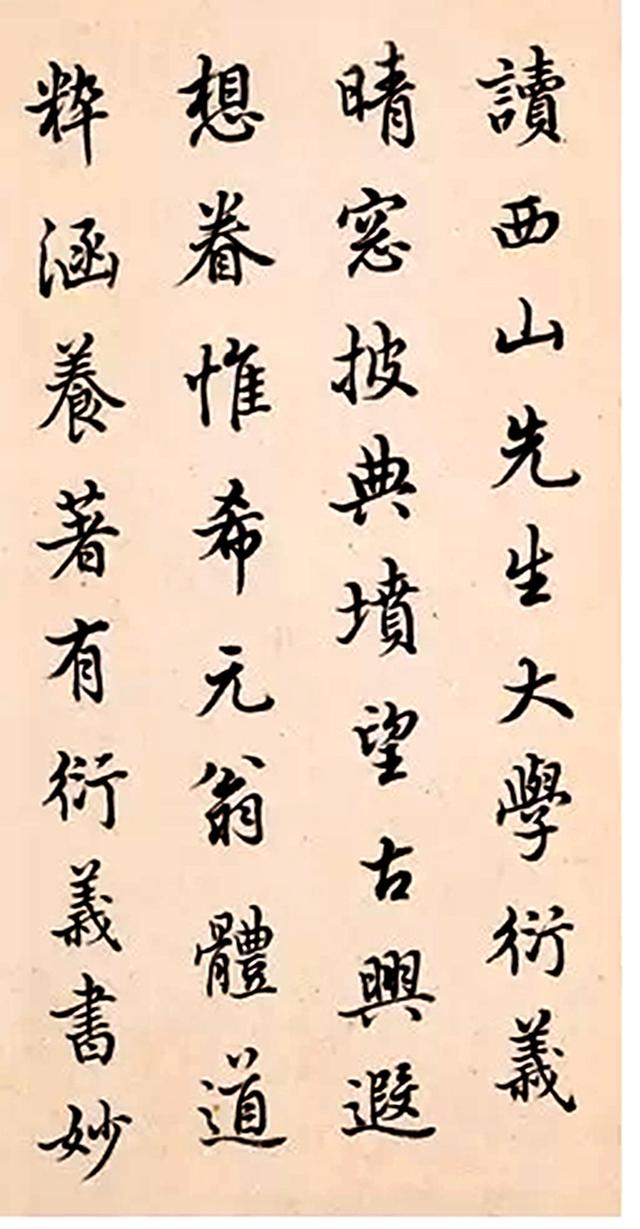 讀西山先生大學衍義
晴窓披典墳望古興遐
想眷惟希元翁體道
粹涵養著有衍義書妙